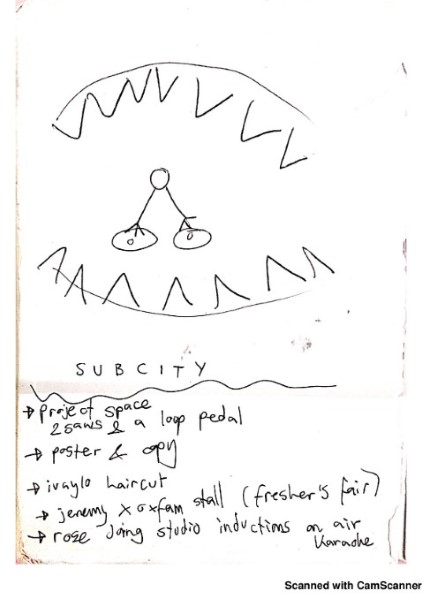 SUBCITY
→ project space
2 saws & a loop pedal
→ poster & copy
→ ivaylo haircut
→ jeremy x oxfam stall (fresher's fair)
→ rose doing studio inductions on air
karaoke
Scanned with CamScanner